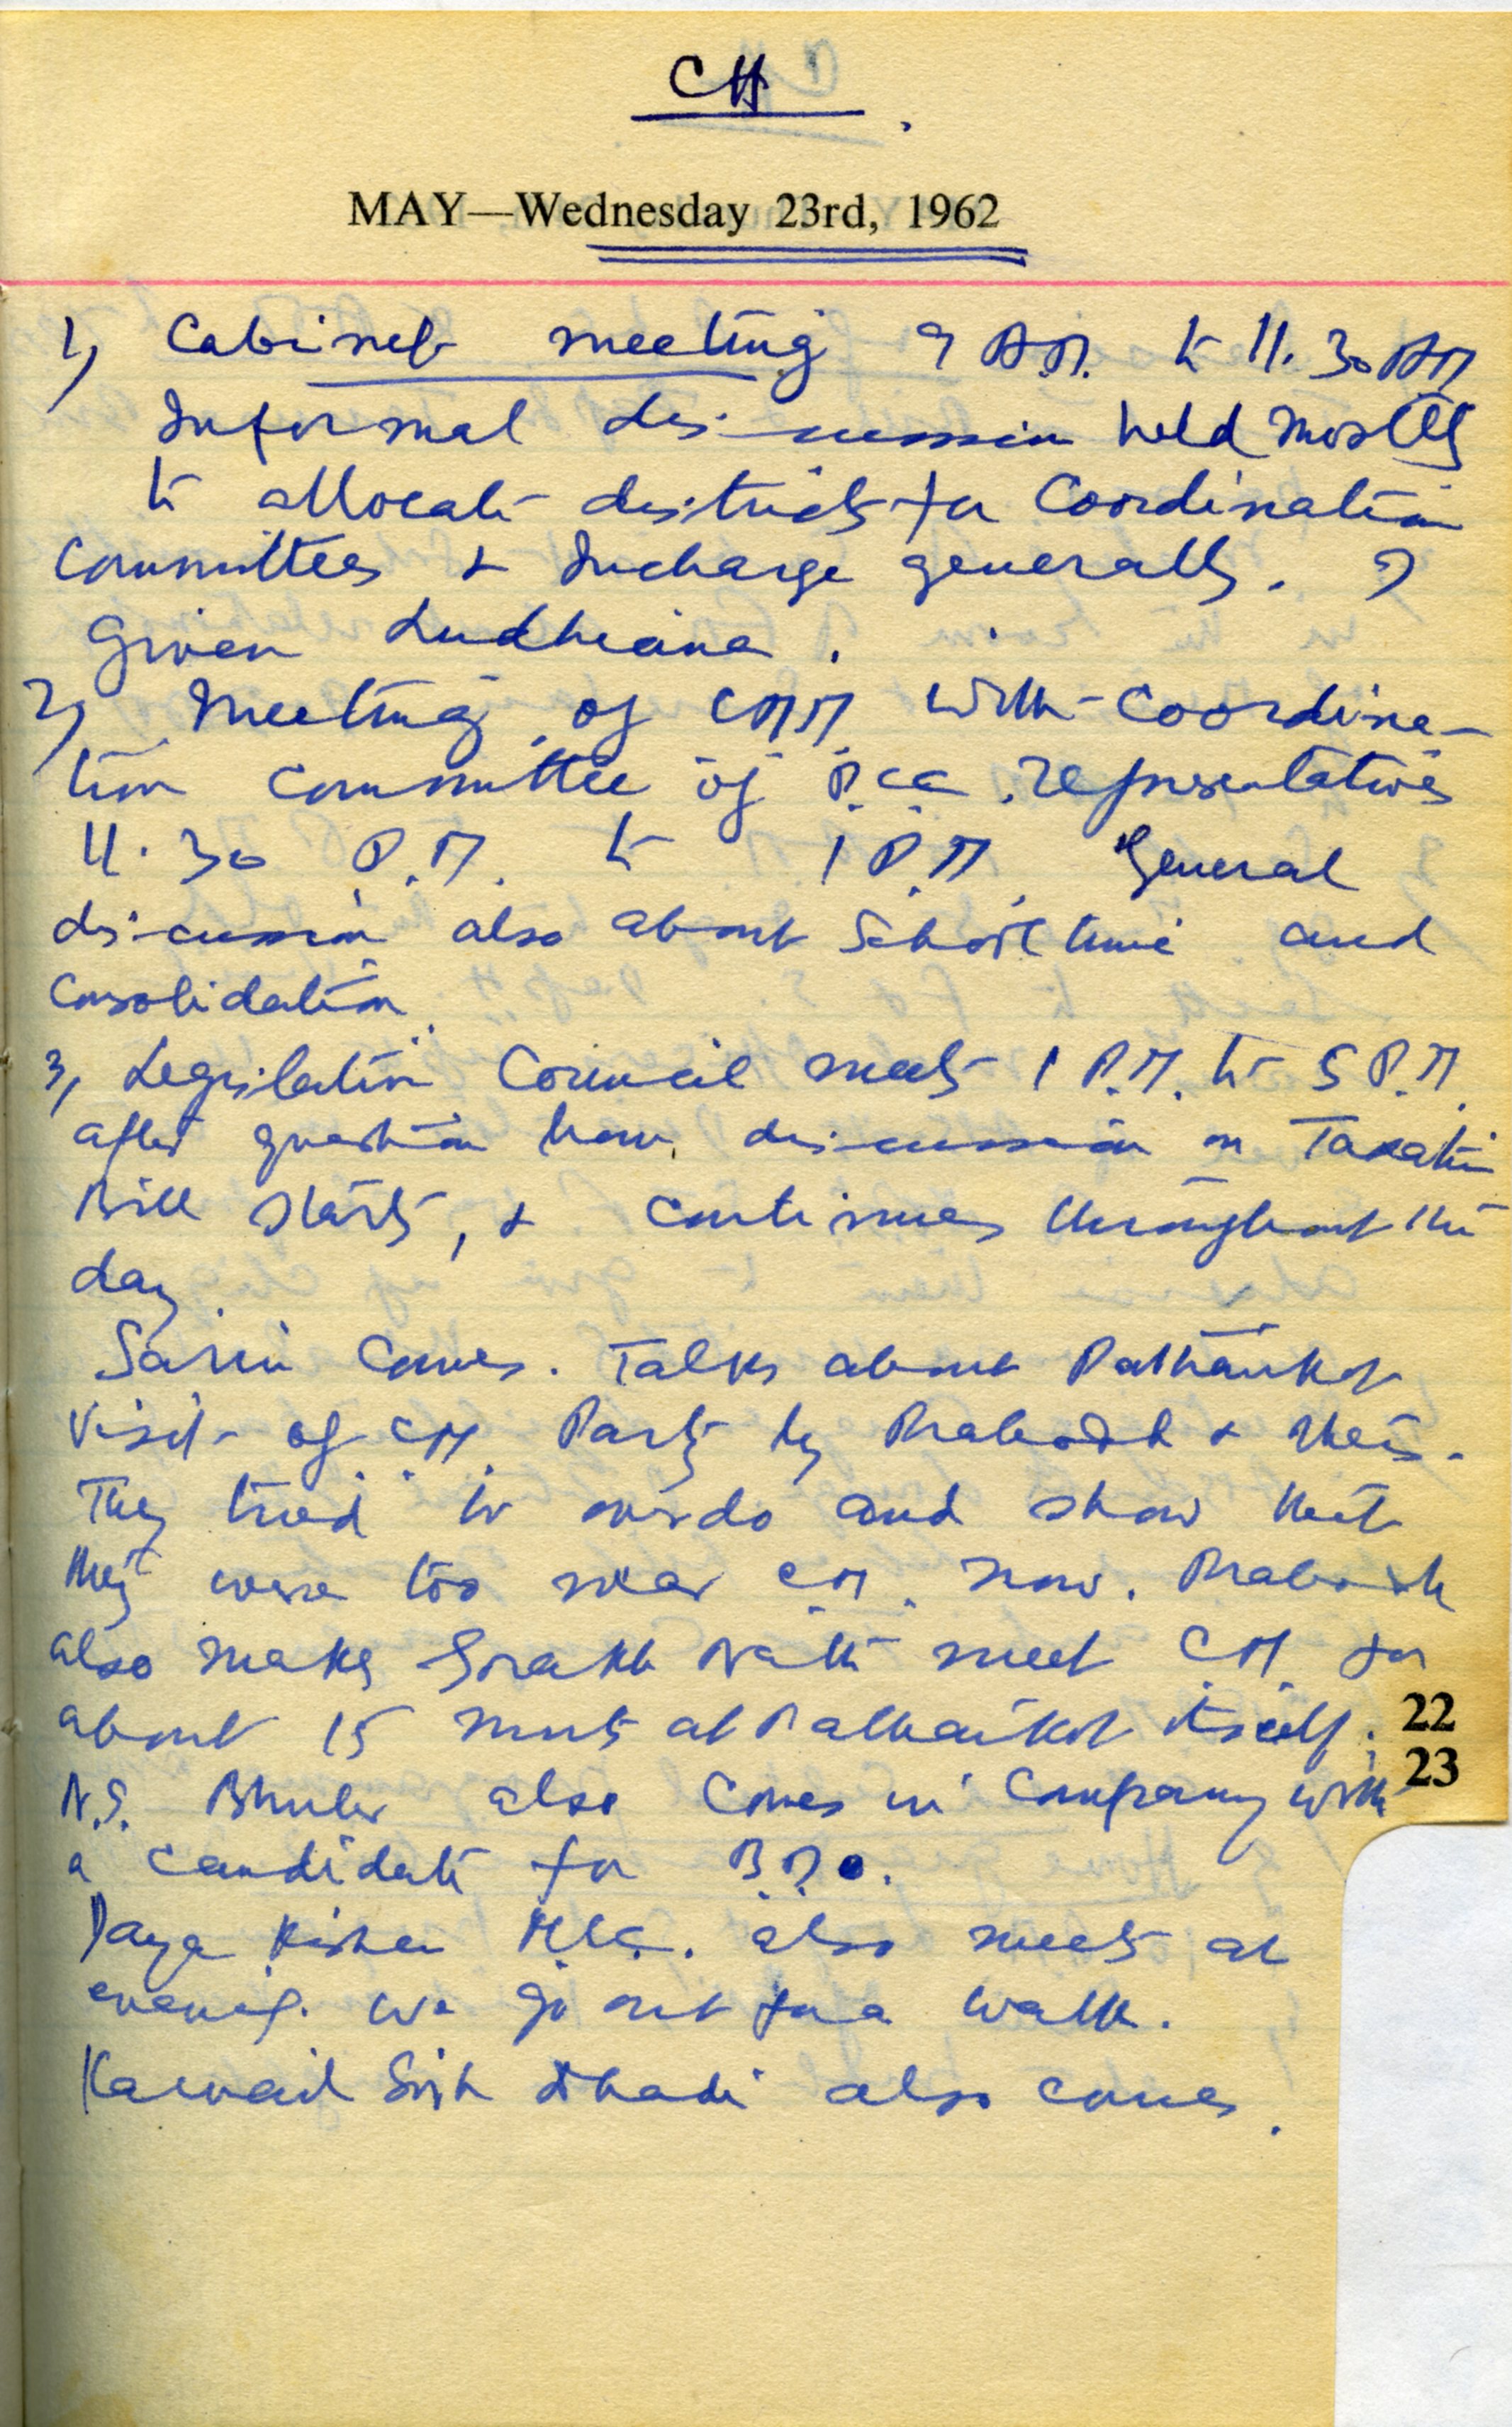 CH
MAY—Wednesday 23rd, 1962
1) Cabinet meeting 9 A.M. to 11.30 AM
Informal discussion held mostly
to allocate districts for Coordination
Committees & Incharge generally. I
Given Ludhiana.
2) Meeting of CMM with Coordina-
tion Committee of P.C.C. representatives
11.30 P.M. to 1 P.M. General
discussion also about School time and
Consolidation
3) Legislative Council meets 1 P.M. to 5 P.M.
after question hour, discussion on Taxation
Bill starts, & continues throughout the
day.
Sarin Comes. Talks about Pathankot
Visit of C.M. Party by Prabodh &
They tried to overdo and show that
they were too near C.M. now. Prabodh
also makes Gorakh Nath meet C.M. for
about 15 mnts at Pathankot itself.
22
23
N.S. Bhuler also Comes in Company with
a candidate for
Daya Kishen M.L.C. also meets at
evening. We go out for a walk.
Karnail Singh Dhadi also comes.